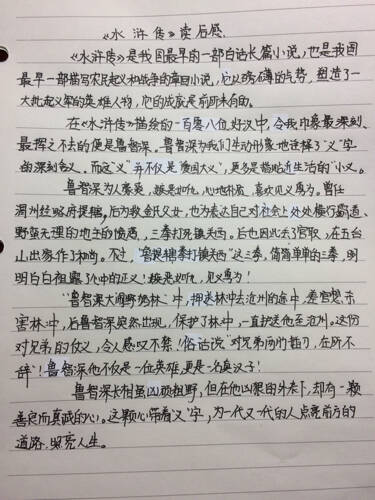 《水浒传》读后感
《水浒传》是我国最早的一部白话长篇小说，也是我国
最早一部描写农民起义和战争的章回小说，它以磅礴的气势，塑造了一
大批起义军的英雄人物，它的成就是前所未有的。
在《水浒传》描绘的一百零八位好汉中，令我印象最深刻、
最挥之不去的便是鲁智深。鲁智深为我们生动形象地诠释了“义”字
的深刻含义。而这“义”并不仅是“爱国大义”，更多是指贴近生活的“小义。
鲁智深为人豪爽，嫉恶如仇，心地朴质，喜欢见义勇为。曾任
渭州经略府提辖，后为救金氏父女，也为表达自己对社会上处处横行霸道、
野蛮无理的地主的愤慨，三拳打死镇关西。后也因此丢了官职，在五台
山出家作了和尚。不过，“鲁提辖拳打镇关西”这三拳，简简单单的三拳，明
明白白袒露了心中的正义！嫉恶如仇，见义勇为！
“鲁智深大闹野猪林”中，押送林冲去沧州的途中，差官想
害林冲，后鲁智深突然出现，保护了林冲，一直护送他至沧州。这份
对兄弟的仗义，令人感叹不禁！俗话说“对兄弟两肋插刀，在所不
辞”！鲁智深他不仅是一位英雄，更是一名真汉子！
鲁智深长相虽凶顽粗野，但在他凶狠的外表下，却有一颗
善良而真诚的心。这颗心带着“义”字，为一代又一代的人点亮前方的
道路，照亮人生。